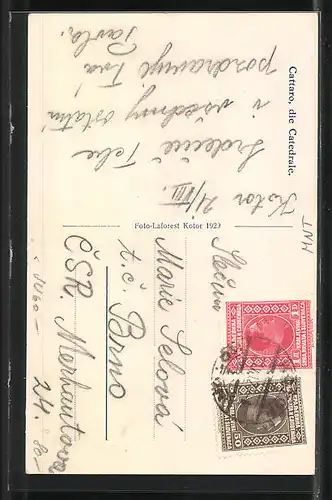 Cattaro, die Catedrale.
Kotor 21/VIII.
Srdečně Tebe
i všechny ostatní
pozdravuje Tvá
Pavla.
Foto-Laforest Kotor 1929
Slečna
Marie Šelová
t.č. Brno
ČSR. Merhautova
24.